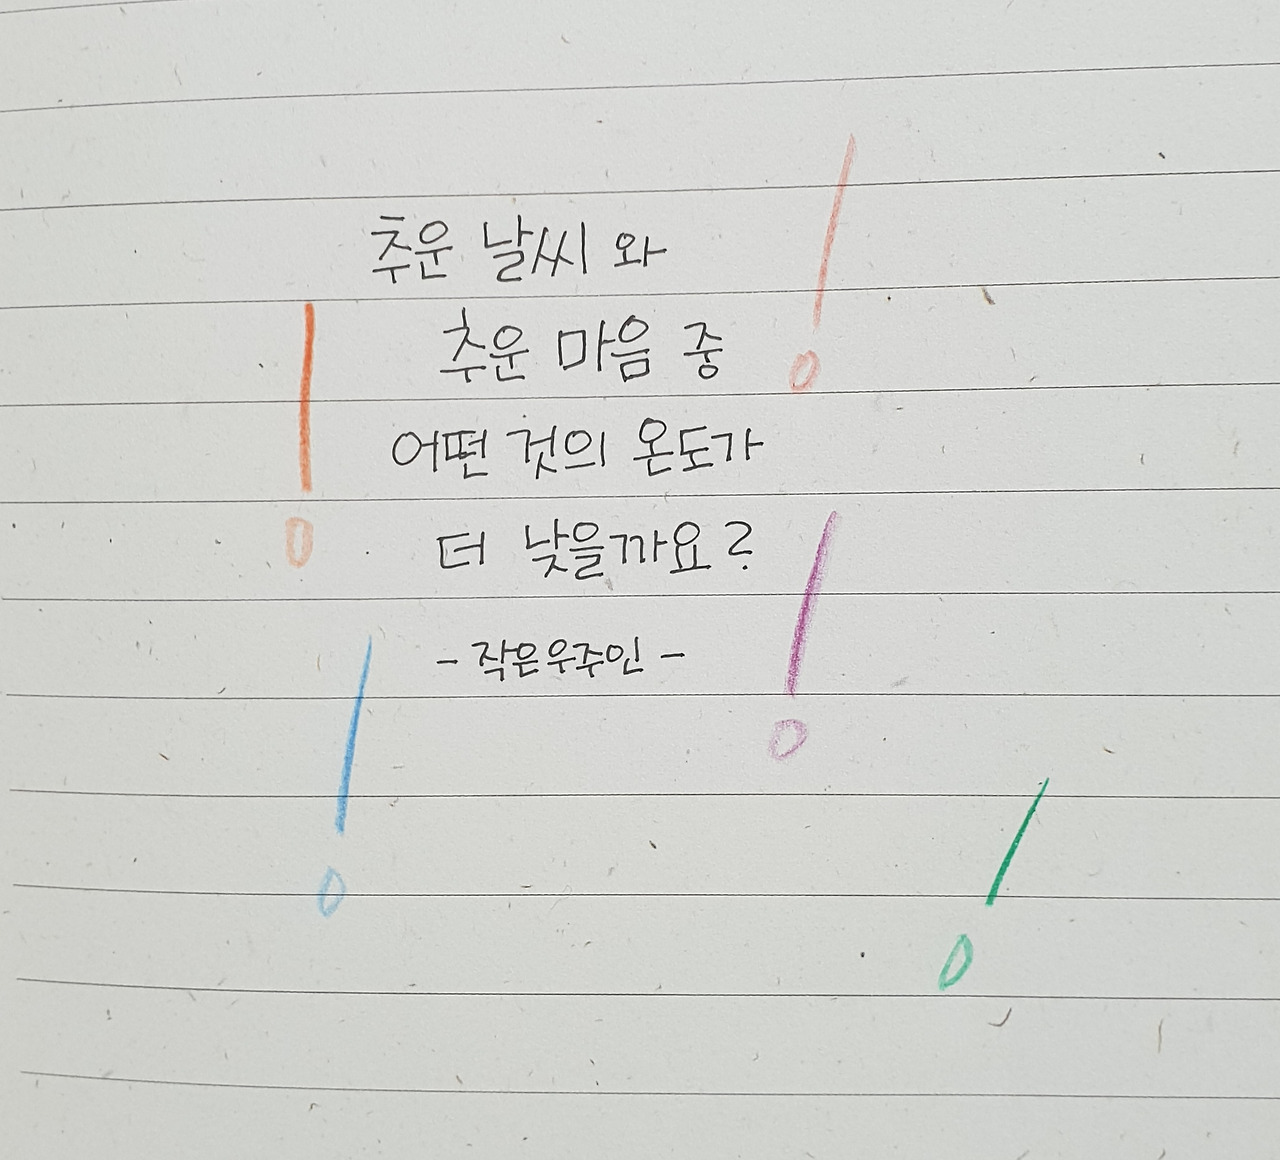 추운 날씨 와
추운 마음 중
어떤 것의 온도가
더 낮을까요?
- 작은우주인 -